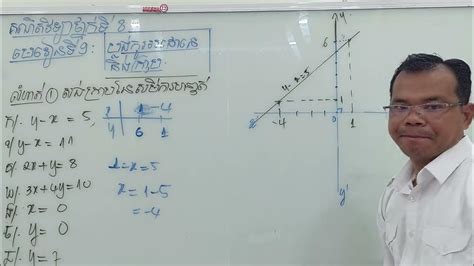 គណិតវិទ្យាថ្នាក់ទី 8
មេរៀនទី 9:
និងក្រាប
លំហាត់ ① សង់ក្រាបនៃសមីការ
ក/. y-x = 5,
x 1 -4
y 6 1
ខ/ y-x = 11
គ/. 2x+y = 8
1-x=5
ឃ/. 3x+4y=10
x = 1-5
ង/. x = 0
= -4
ច/. y = 0
ឆ/. y = 7
y
6
y-x=5
1
-4
0
1
x'
y'